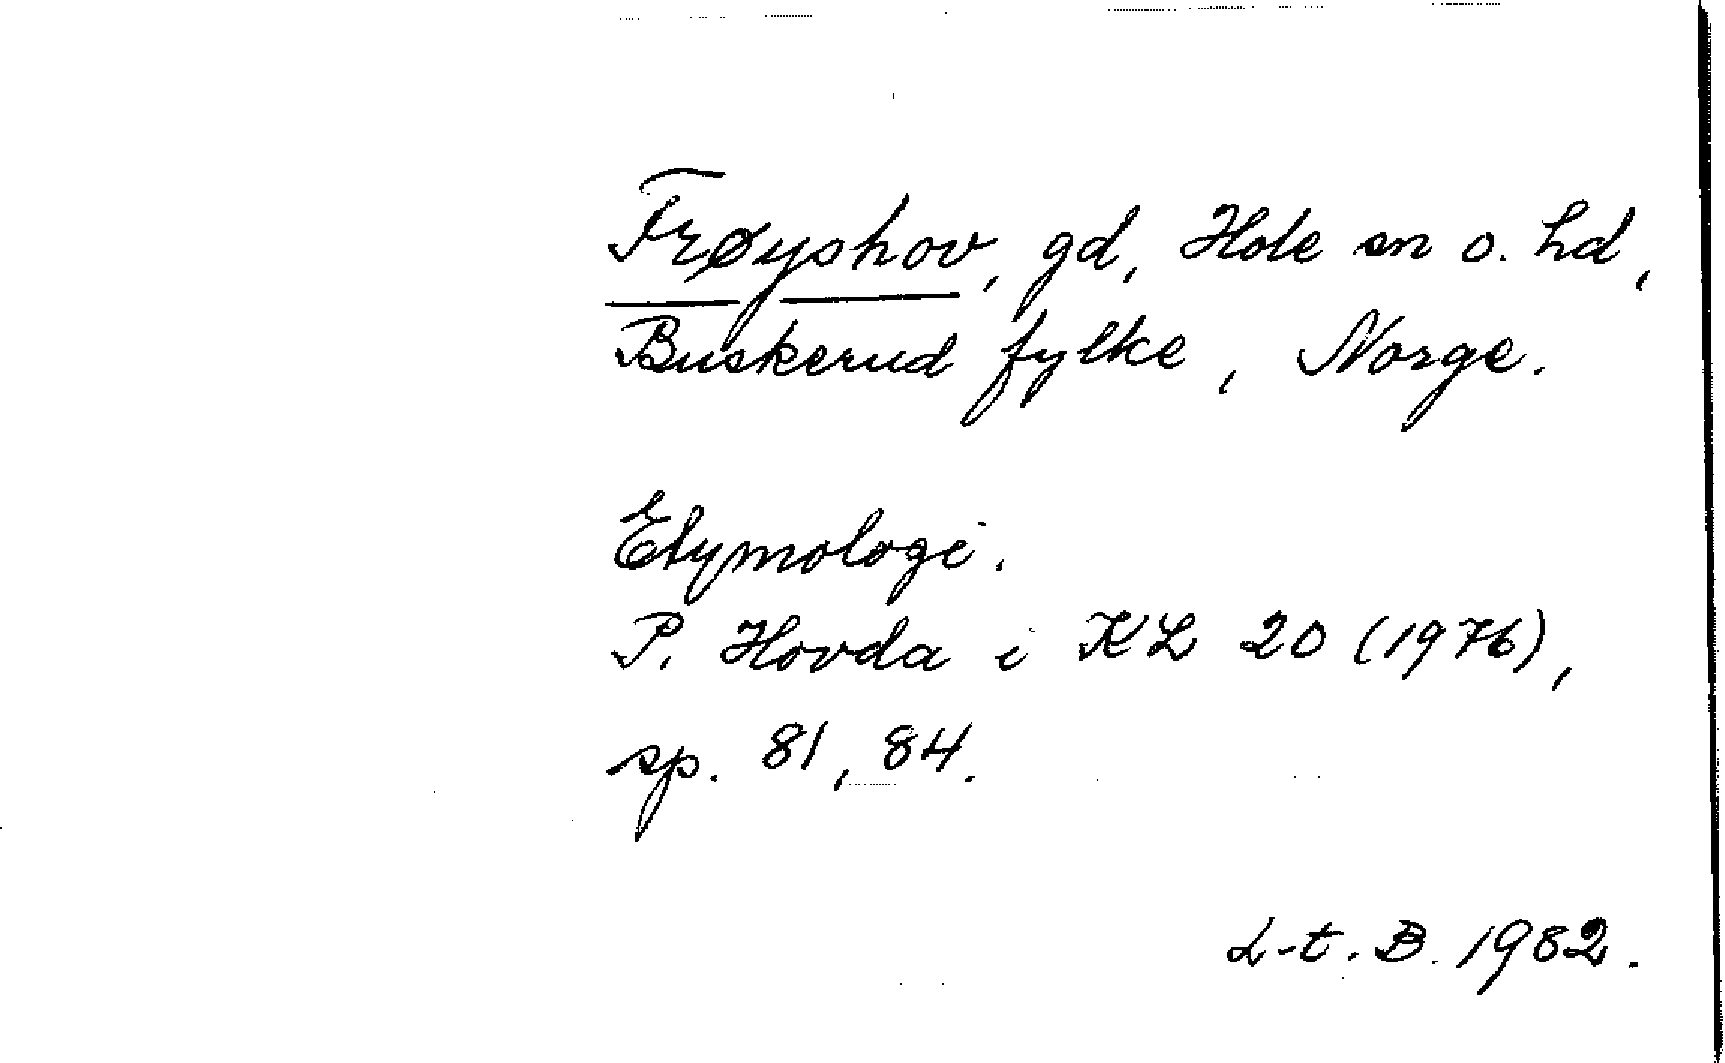 Frøyshov, gd, Hole sn o. hd,
Buskerud fylke, Norge.
Etymologi.
P. Hovda i KL 20 (1976),
sp. 81, 84.
L-t. B. 1982.